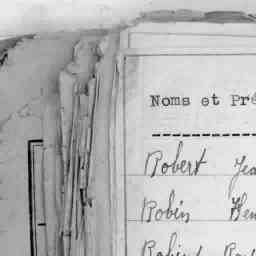 Noms et Pré
Robert Jea
Robin Hen